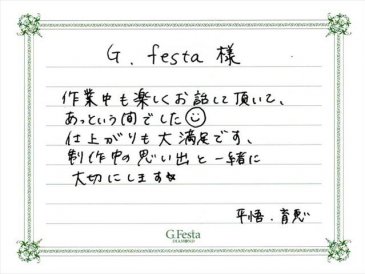 G. festa 様
作業中も楽しくお話して頂いて、
あっという間でした☺
仕上がりも大満足です、
制作中の思い出と一緒に
大切にします☆
平悟. 育恵
G.Festa
DIAMOND